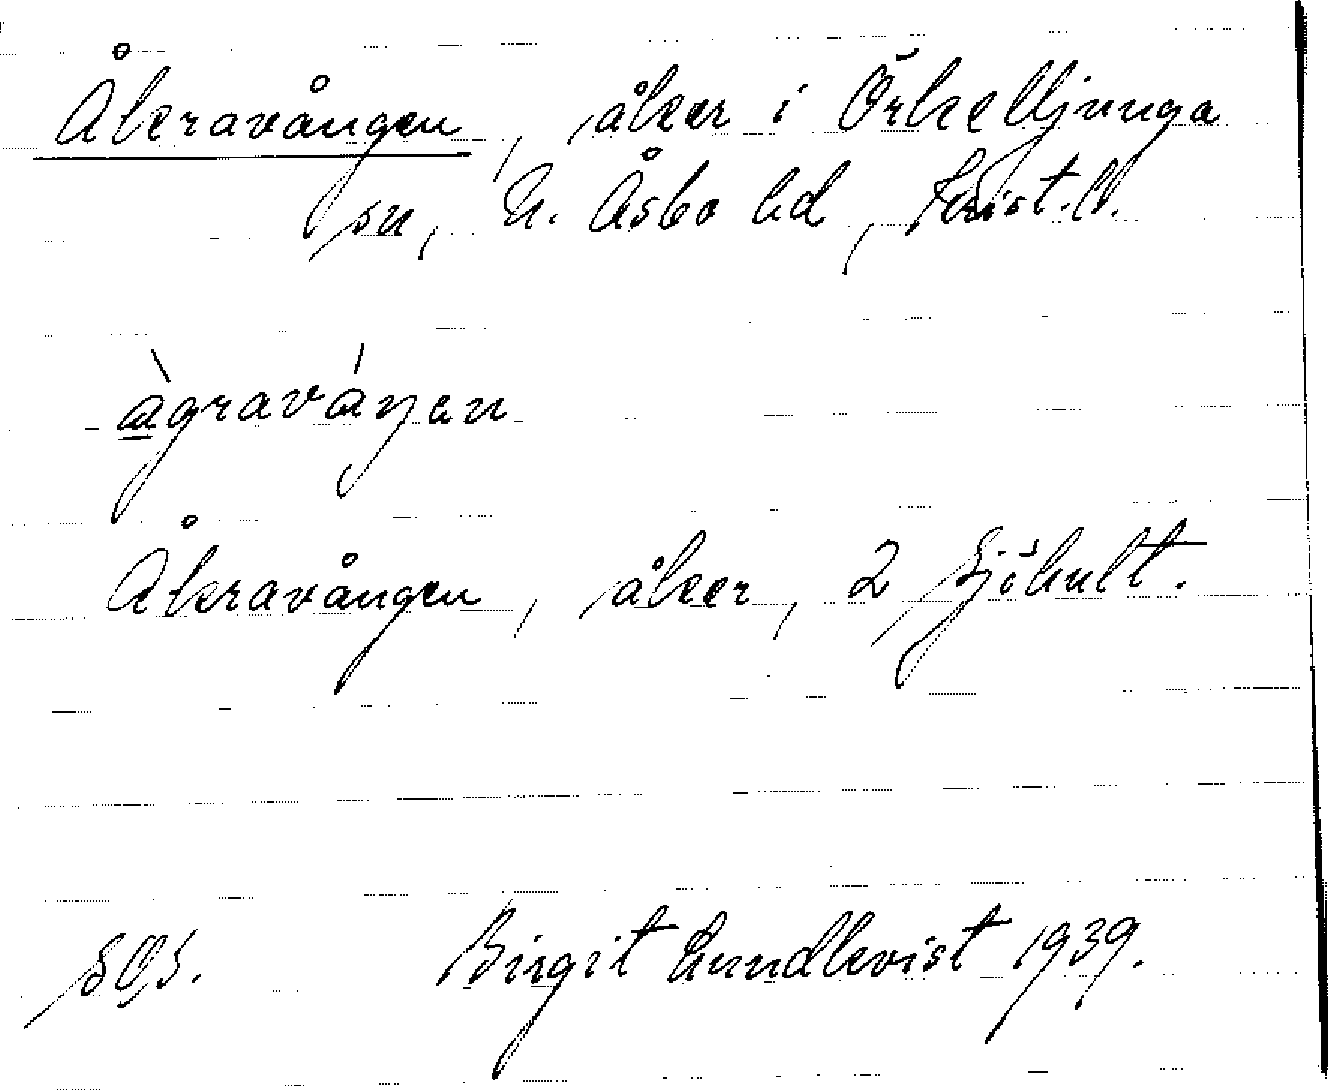 Åkravången, åker i Örkelljunga
sn, N. Åsbo hd, Krist. l.
àgraváŋen
Åkravången, åker, 2 Sjöhult.
SOS. Birgit Lundkvist 1939.